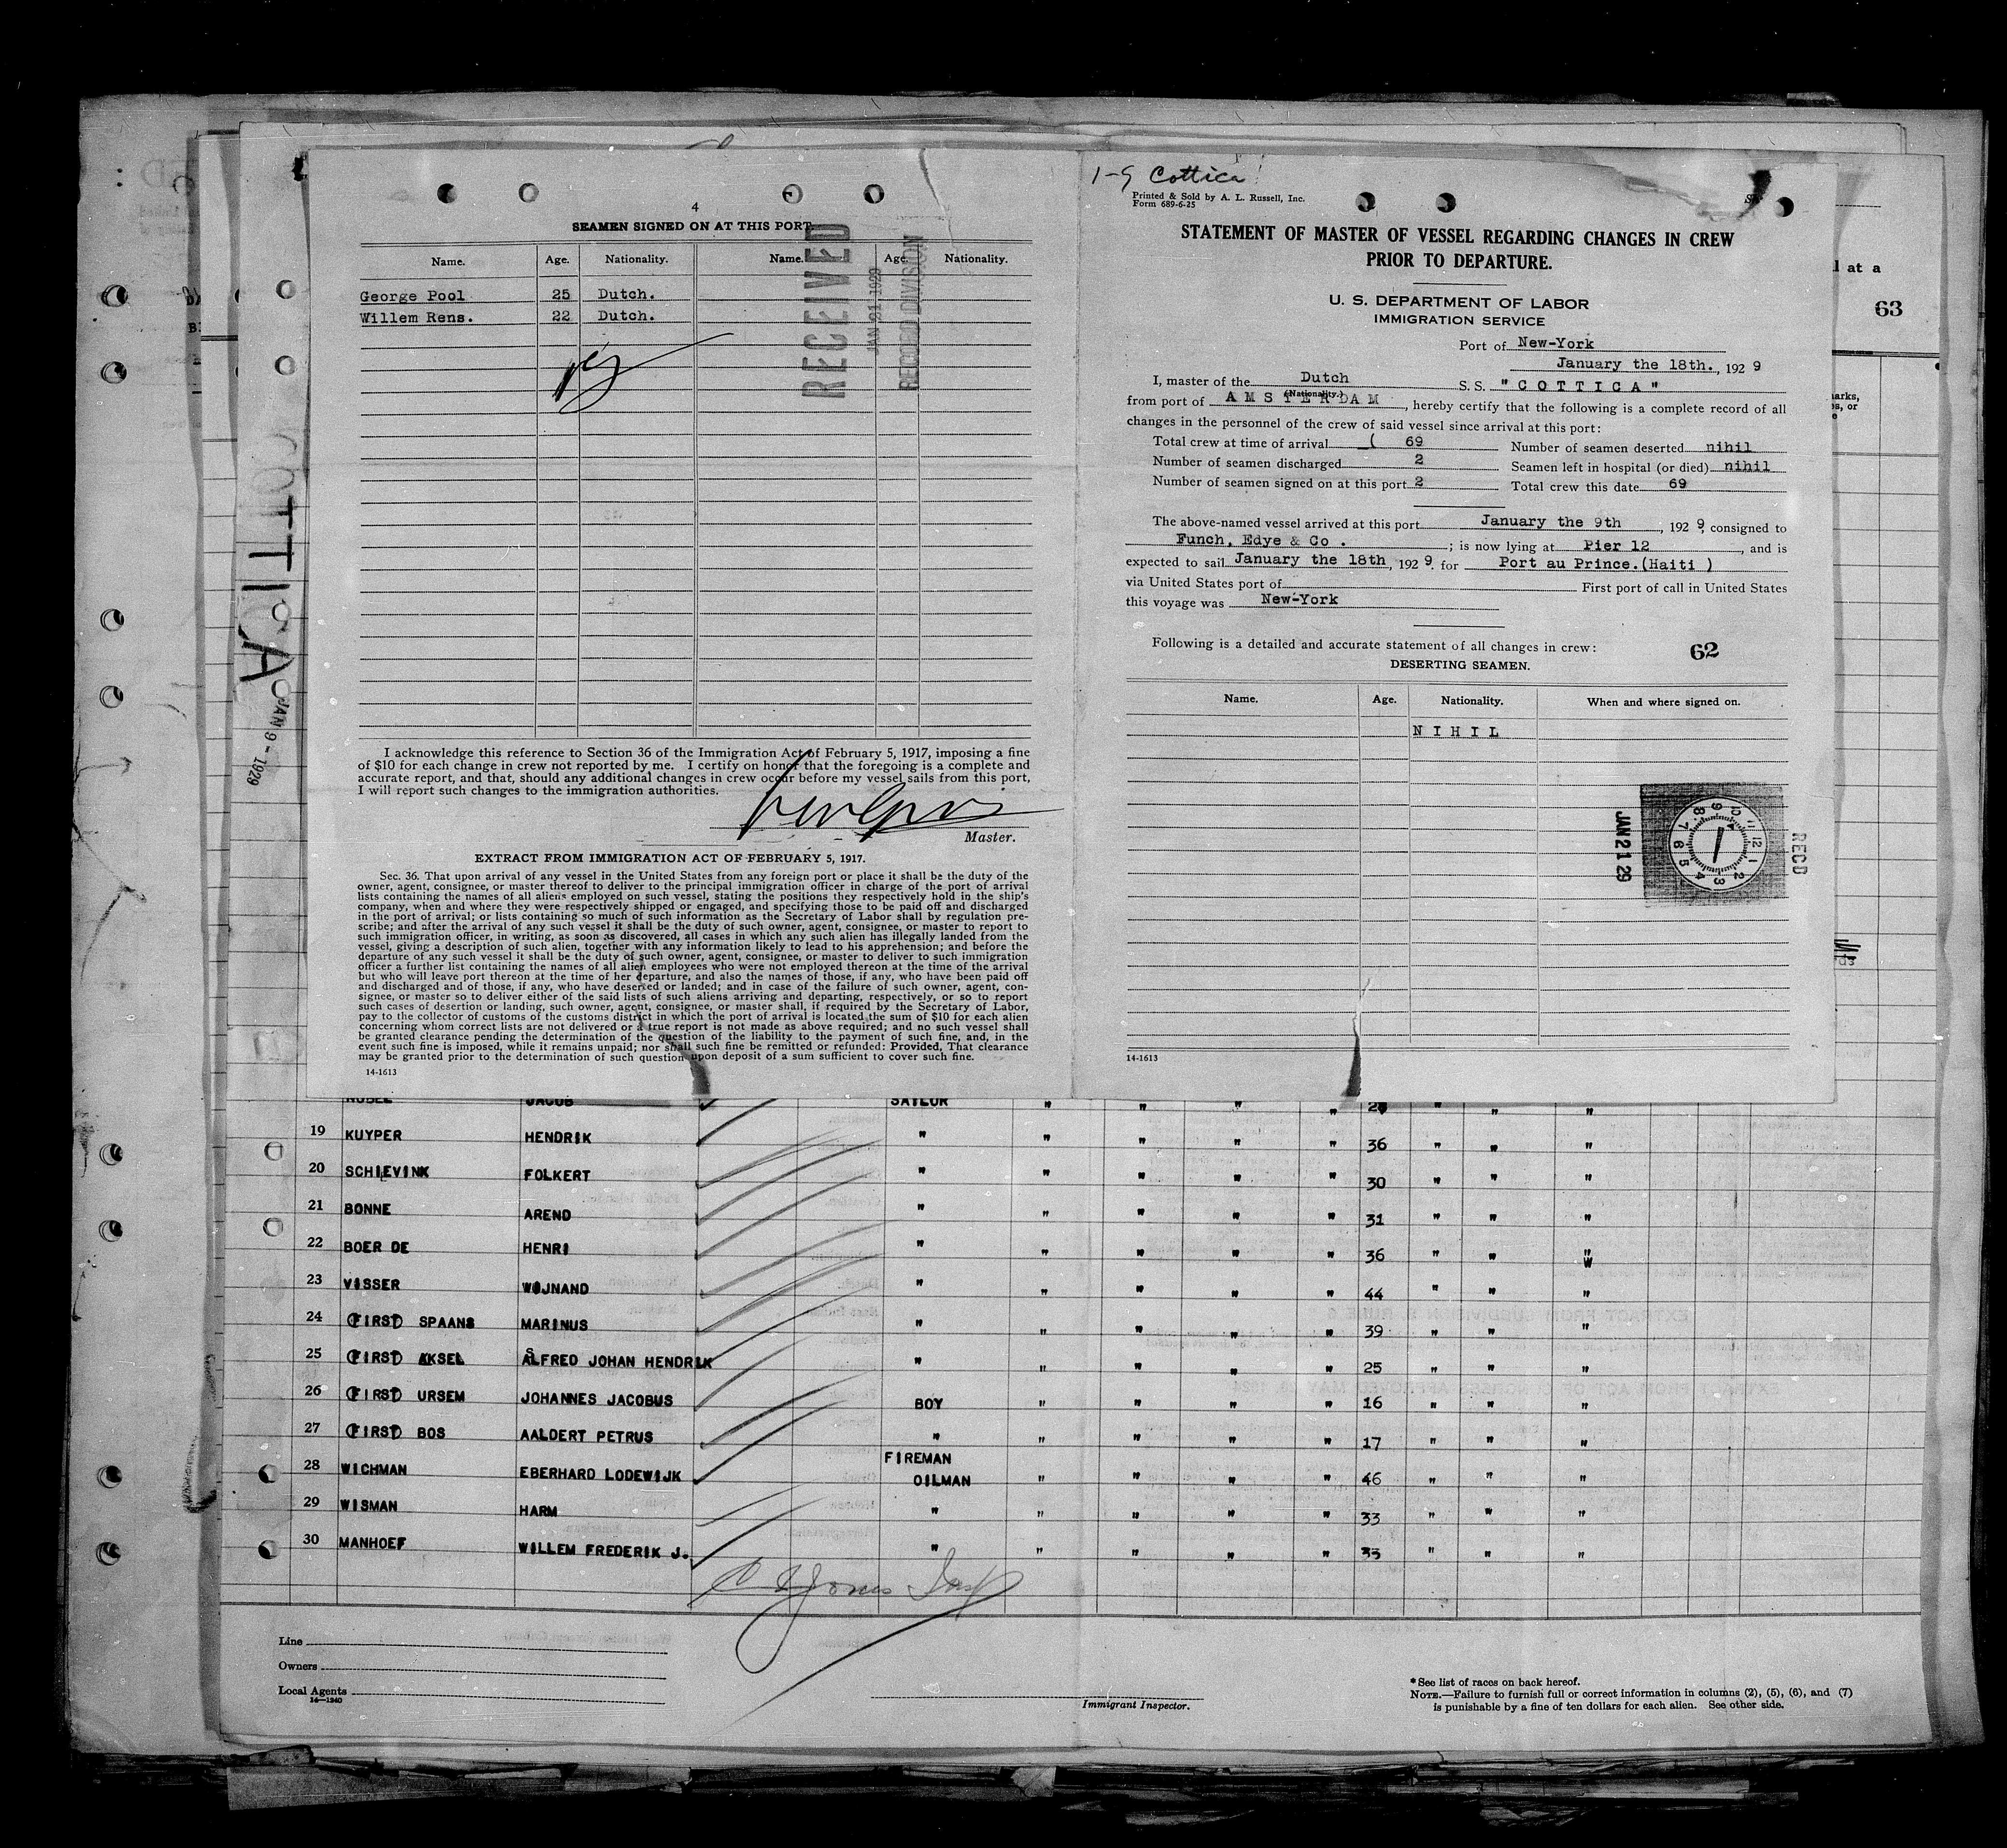 4
SEAMEN SIGNED ON AT THIS PORT.
Name. Age. Nationality. Name. Age. Nationality.
George Pool 25 Dutch.
Willem Rens. 22 Dutch.
RECEIVED
JAN 21 1929
RECORD DIVISION
I acknowledge this reference to Section 36 of the Immigration Act of February 5, 1917, imposing a fine
of $10 for each change in crew not reported by me. I certify on honor that the foregoing is a complete and
accurate report, and that, should any additional changes in crew occur before my vessel sails from this port,
I will report such changes to the immigration authorities.
Master.
EXTRACT FROM IMMIGRATION ACT OF FEBRUARY 5, 1917.
Sec. 36. That upon arrival of any vessel in the United States from any foreign port or place it shall be the duty of the
owner, agent, consignee, or master thereof to deliver to the principal immigration officer in charge of the port of arrival
lists containing the names of all aliens employed on such vessel, stating the positions they respectively hold in the ship's
company, when and where they were respectively shipped or engaged, and specifying those to be paid off and discharged
in the port of arrival; or lists containing so much of such information as the Secretary of Labor shall by regulation pre-
scribe; and after the arrival of any such vessel it shall be the duty of such owner, agent, consignee, or master to report to
such immigration officer, in writing, as soon as discovered, all cases in which any such alien has illegally landed from the
vessel, giving a description of such alien, together with any information likely to lead to his apprehension; and before the
departure of any such vessel it shall be the duty of such owner, agent, consignee, or master to deliver to such immigration
officer a further list containing the names of all alien employees who were not employed thereon at the time of the arrival
but who will leave port thereon at the time of her departure, and also the names of those, if any, who have been paid off
and discharged and of those, if any, who have deserted or landed; and in case of the failure of such owner, agent, con-
signee, or master so to deliver either of the said lists of such aliens arriving and departing, respectively, or so to report
such cases of desertion or landing, such owner, agent, consignee, or master shall, if required by the Secretary of Labor,
pay to the collector of customs of the customs district in which the port of arrival is located the sum of $10 for each alien
concerning whom correct lists are not delivered or a true report is not made as above required; and no such vessel shall
be granted clearance pending the determination of the question of the liability to the payment of such fine, and, in the
event such fine is imposed, while it remains unpaid; nor shall such fine be remitted or refunded: Provided, That clearance
may be granted prior to the determination of such question upon deposit of a sum sufficient to cover such fine.
14-1613
1-9 Cottica
Printed & Sold by A. L. Russell, Inc.
Form 689-6-25
STATEMENT OF MASTER OF VESSEL REGARDING CHANGES IN CREW
PRIOR TO DEPARTURE.
U. S. DEPARTMENT OF LABOR
IMMIGRATION SERVICE
Port of New-York
January the 18th., 1929
I, master of the Dutch S. S. "COTTICA"
(Nationality.)
from port of AMSTERDAM, hereby certify that the following is a complete record of all
changes in the personnel of the crew of said vessel since arrival at this port:
Total crew at time of arrival ( 69 Number of seamen deserted nihil
Number of seamen discharged 2 Seamen left in hospital (or died) nihil
Number of seamen signed on at this port 2 Total crew this date 69
The above-named vessel arrived at this port January the 9th, 1929, consigned to
Funch, Edye & Co .; is now lying at Pier 12, and is
expected to sail January the 18th, 1929. for Port au Prince.(Haiti )
via United States port of First port of call in United States
this voyage was New-York
Following is a detailed and accurate statement of all changes in crew: 62
DESERTING SEAMEN.
Name. Age. Nationality. When and where signed on.
NIHIL
JAN 21 29
REC'D
12 1 2 3 4 5 6 7 8 9 10 11
14-1613
COTTICA
JAN 9 - 1929
l at a
63
arks,
s, or
e
NOBEL JACOB SAYLOR " " " " " " "
19 KUYPER HENDRIK " " " " " 36 " " "
20 SCHIEVINK FOLKERT " " " " " 30 " " "
21 BONNE AREND " " " " " 31 " " "
22 BOER DE HENRI " " " " " 36 " " "
W
23 VISSER WIJNAND " " " " " 44 " " "
24 (FIRST) SPAANS MARINUS " " " " " 39 " " "
25 (FIRST) AKSEL ALFRED JOHAN HENDRIK " " " " " 25 " " "
26 (FIRST) URSEM JOHANNES JACOBUS BOY " " " " 16 " " "
27 (FIRST) BOS AALDERT PETRUS " " " " " 17 " " "
28 WICHMAN EBERHARD LODEWIJK FIREMAN
OILMAN " " " " 46 " " "
29 WISMAN HARM " " " " " 33 " " "
30 MANHOEF WILLEM FREDERIK J. " " " " " 33 " " "
Line
Owners
Local Agents
14-1240
Immigrant Inspector.
*See list of races on back hereof.
NOTE.—Failure to furnish full or correct information in columns (2), (5), (6), and (7)
is punishable by a fine of ten dollars for each alien. See other side.